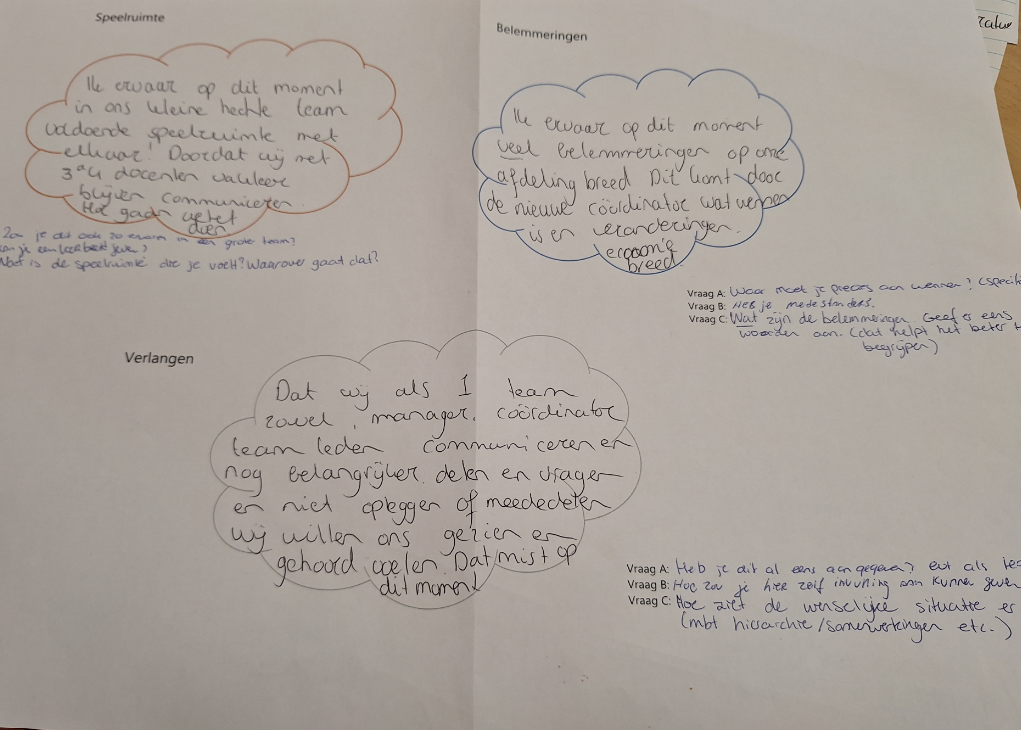 Speelruimte
Ik ervaar op dit moment
in ons kleine hechte team
voldoende speelruimte met
elkaar! Doordat wij met
3 a 4 docenten
blijven communiceren.
Hoe gaan
dien
Zou je dit ook zo ervaren in een grote team?
kan je een voorbeeld geven?
Wat is de speelruimte die je voelt? Waarover gaat dat?
Belemmeringen
Ik ervaar op dit moment
veel belemmeringen op onze
afdeling breed Dit komt door
de nieuwe coördinator wat
is er veranderingen.
breed
Vraag A: Waar moet je precies aan wennen?
Vraag B: Heb je medestanders.
Vraag C: Wat zijn de belemmeringen. Geef er eens
woorden aan. (dat helpt het beter t
begrijpen)
Verlangen
Dat wij als 1 team
zowel, manager, coördinator
team leden communiceren en
nog belangrijker delen en vragen
en niet opleggen of meededelen
wij willen ons gezien en
gehoord voelen. Dat mist op
dit moment
Vraag A: Heb je dit al eens aangegeven? evt als
Vraag B: Hoe zou je hier zelf invulling aan kunnen geven
Vraag C: Hoe ziet de wenselijke situatie er
(mbt hierarchie/samenwerkingen etc.)